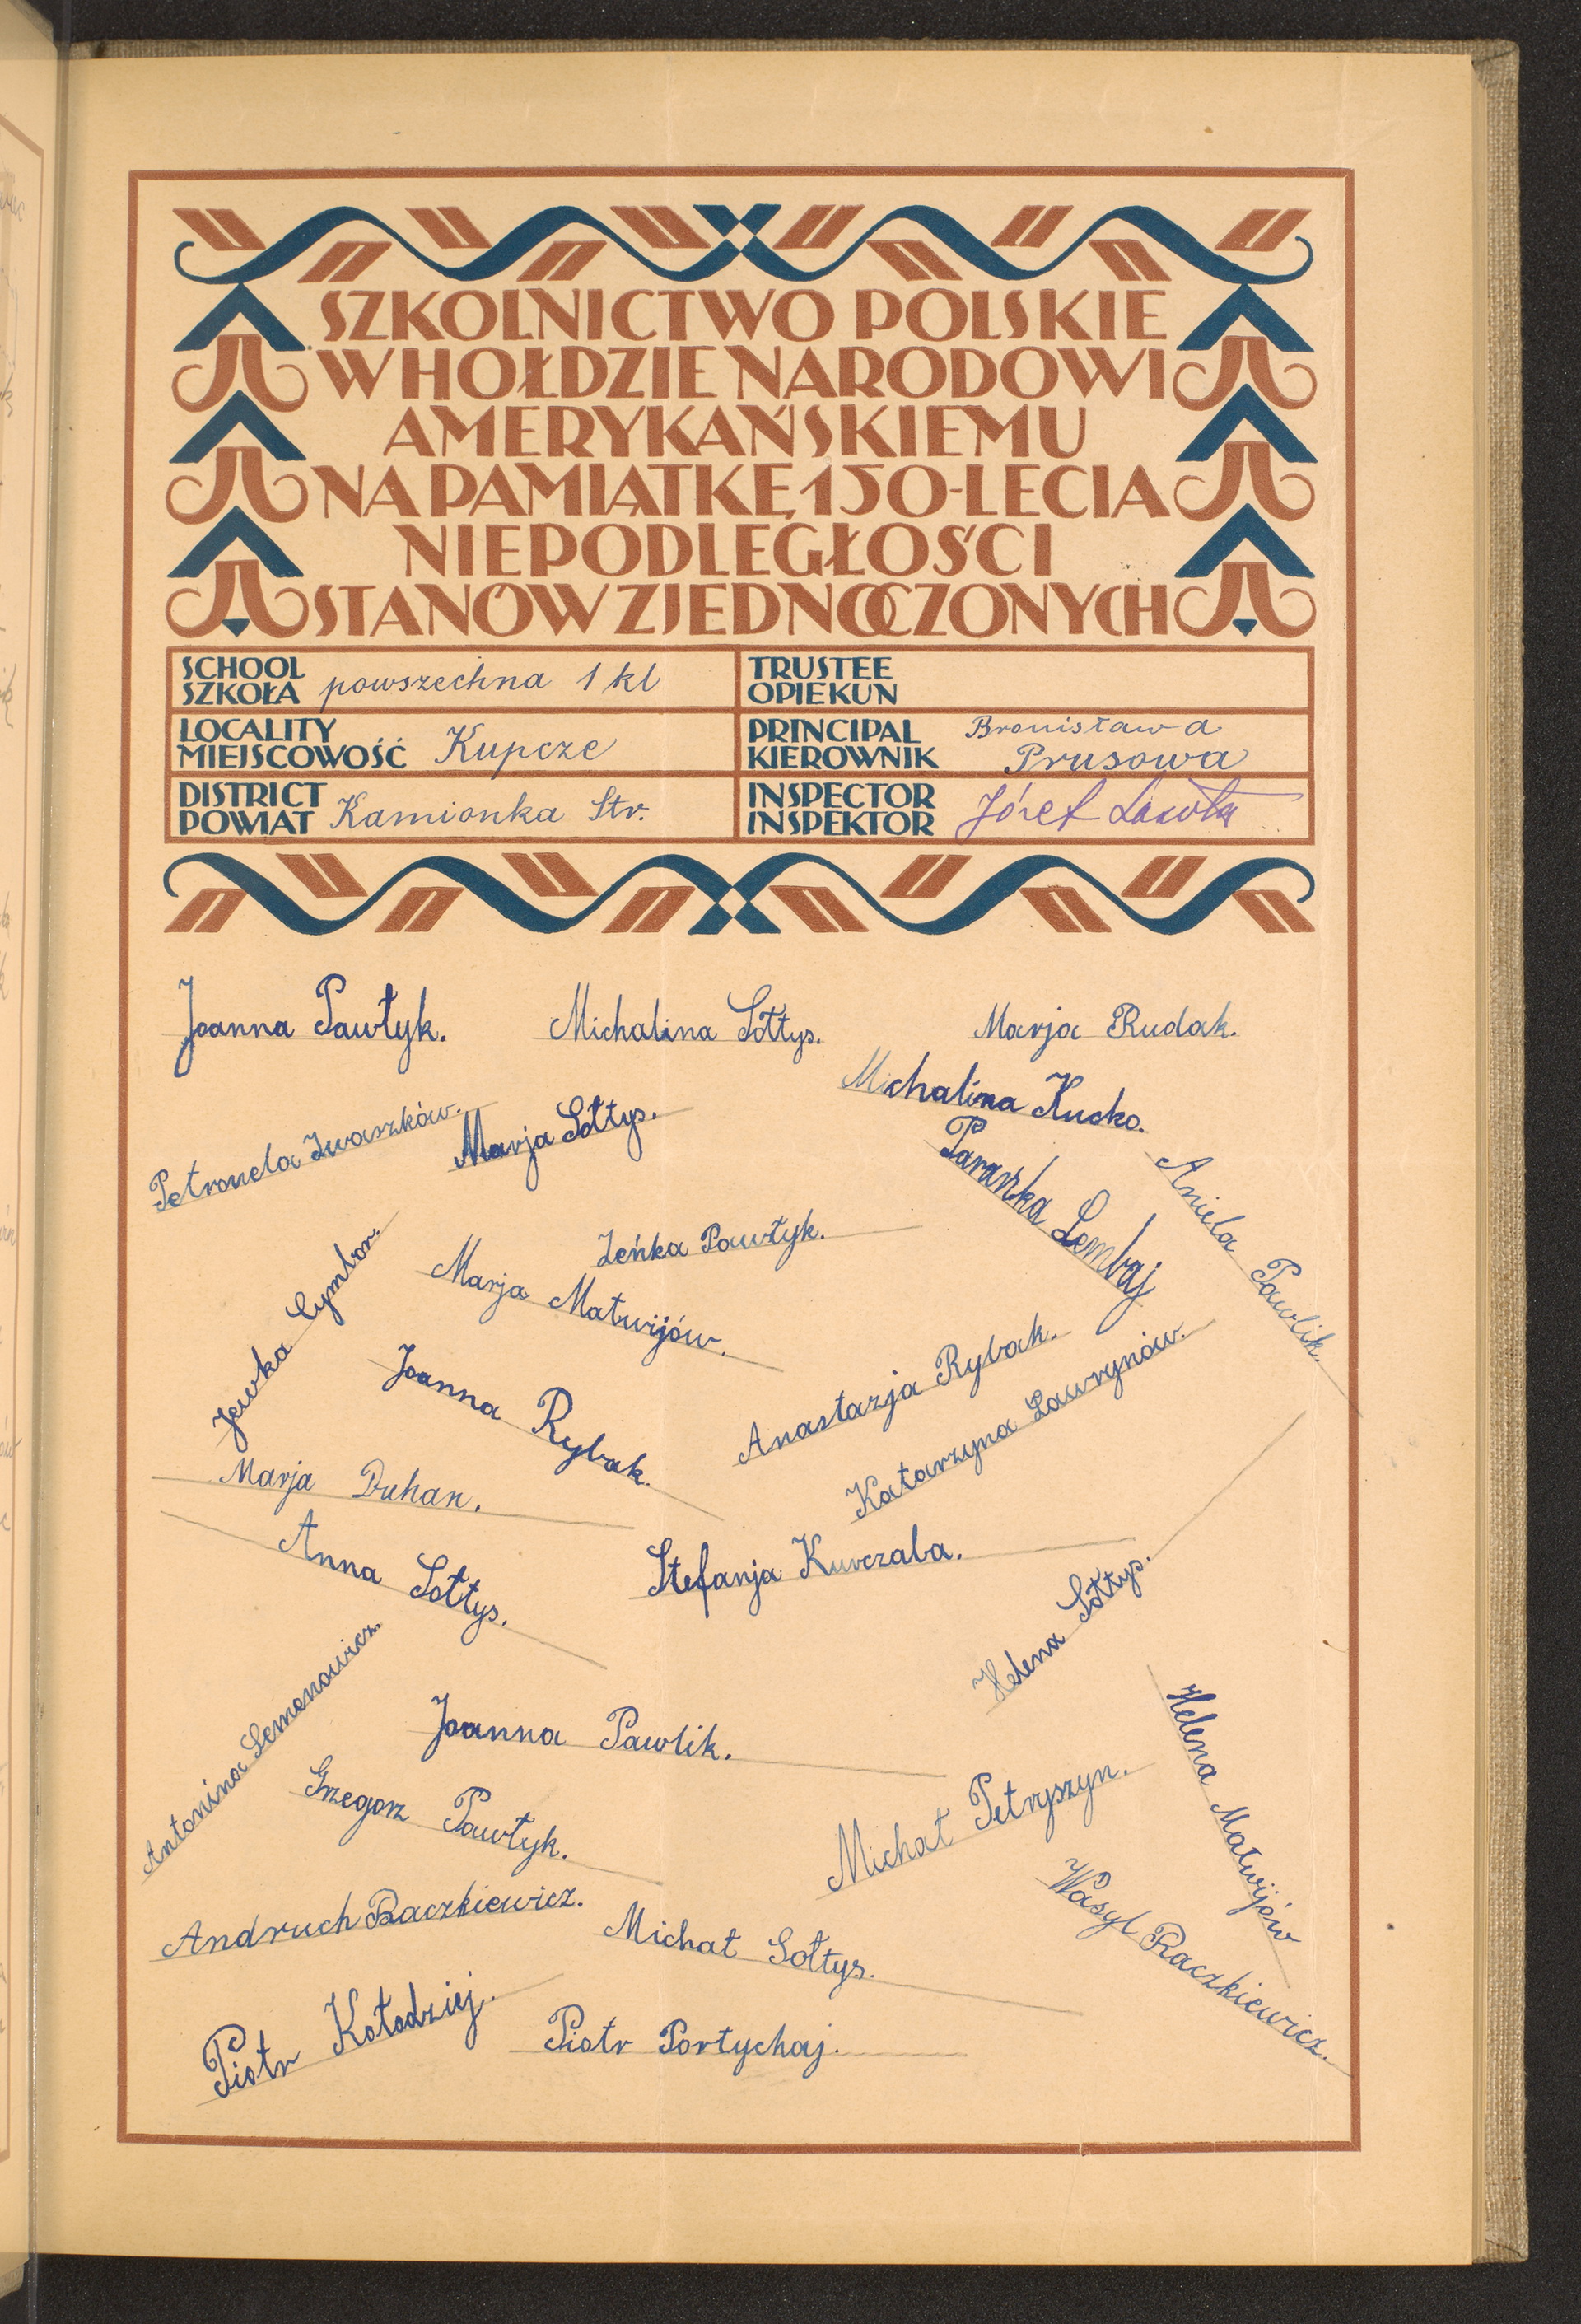 SZKOLNICTWO POLSKIE
W HOŁDZIE NARODOWI
AMERYKAŃSKIEMU
NA PAMIĄTKĘ 150-LECIA
NIEPODLEGŁOŚCI
STANÓW ZJEDNOCZONYCH
SCHOOL
SZKOŁA powszechna 1 kl
TRUSTEE
OPIEKUN
LOCALITY
MIEJSCOWOŚĆ Kupcze
PRINCIPAL
KIEROWNIK Bronisława
Prusowa
DISTRICT
POWIAT Kamionka Str.
INSPECTOR
INSPEKTOR Józef
Joanna Pawłyk.
Michalina Sołtys.
Marja Rudak.
Michalina Kucko.
Petronela Iwaszków.
Marja Sołtys.
Parańka Lembaj
Aniela Pawlik.
Jewka Cymbor.
Zeńka Pawłyk.
Marja Matwijów.
Joanna Rybak.
Anastazja Rybak.
Katarzyna Ławrynów.
Marja Duhan.
Anna Sołtys.
Stefanja Kurczaba.
Helena Sołtys.
Antonina Semenowicz.
Joanna Pawlik.
Helena Matwijów
Grzegorz Pawłyk.
Michał Petryszyn.
Wasyl Raczkiewicz.
Andruch Baczkiewicz.
Michał Sołtys.
Piotr Kołodziej.
Piotr Portychaj.